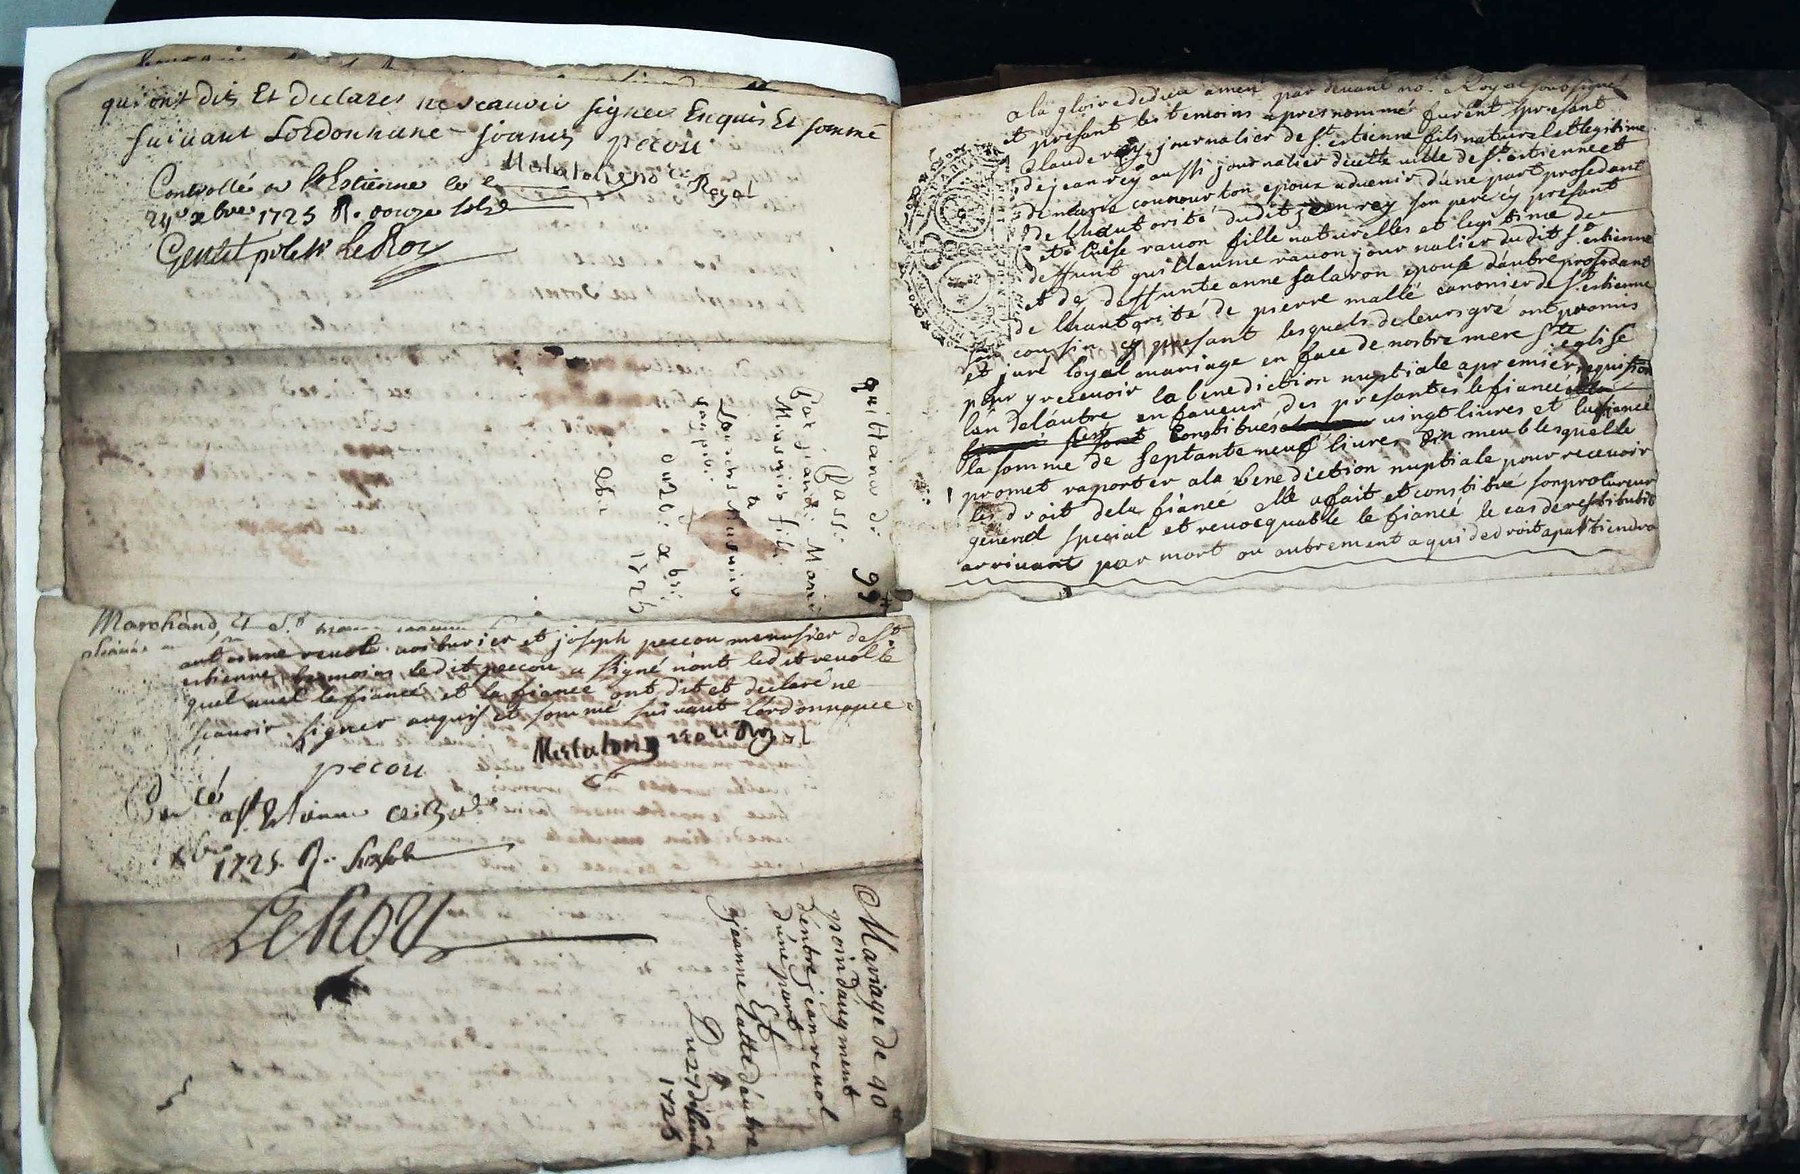 qui ont dit Et declarer ne scauoir signer Enquis Et sommé
suiuant Lordonnane joanis pecou
Royal
Controllé a St Estienne le
24e xbre 1725 R. douze sols
Gentil pr le Sr LeRoy
quittance de 99
passé
Par jeande Marie
Meusnier fils
a
Du 20e xbre
1725
Marchand
antoinne reuol et joseph peccou menusier de St
estienne temoins ledit peccou a signé non ledit reuol le
quel auel le fiancé et la fiancé ont dit et declaré ne
scauoir signer enquis et sommé suiuant lordonnance
Mestalong no. Roy.l
pecou
Con.lé a St Etienne ce
xbre 1725 R. six sols
LeROY
Mariage de 40
poin daugment
d'entre jean reuol
d'une part
Et
jeanne latte dautre
Du 27 decembre
1725
a la gloire de dieu amen par deuant no.e Royal soubsigné
et presant les temoins apres nommé furent presant
Claude rey journalier de St estienne fils naturel et legitime
de jean rey aussi journalier de cette uille de St estienne et
de marie couuourton epoux aduenir d'une part prosedant
de lhautorité dudit jean rey son pere cy presant
et loise rauon fille naturelles et legitime de
deffunt guillaume rauon journalier dudit St estienne
et de deffunte anne salaron epouse dautre prosedant
de lhautorité de pierre mallé canonier de St estienne
son cousin cy presant lesquels de leurs gré ont promis
et juré loyal mariage en face de nostre mere Ste eglise
pour y receuoir la benediction nuptiale a premier requisition
lun delautre en faueur des presantes le fiancé
constitués uingt liures et la fiancé
la somme de septante neuf liures en meubles quelle
promet raporter a la benediction nuptiale pour receuoir
les droit dela fiancé elle a fait et constitue son procureur
general special et reuocquable le fiancé le cas de restitution
arriuant par mort ou autrement a qui de droit apartiendra